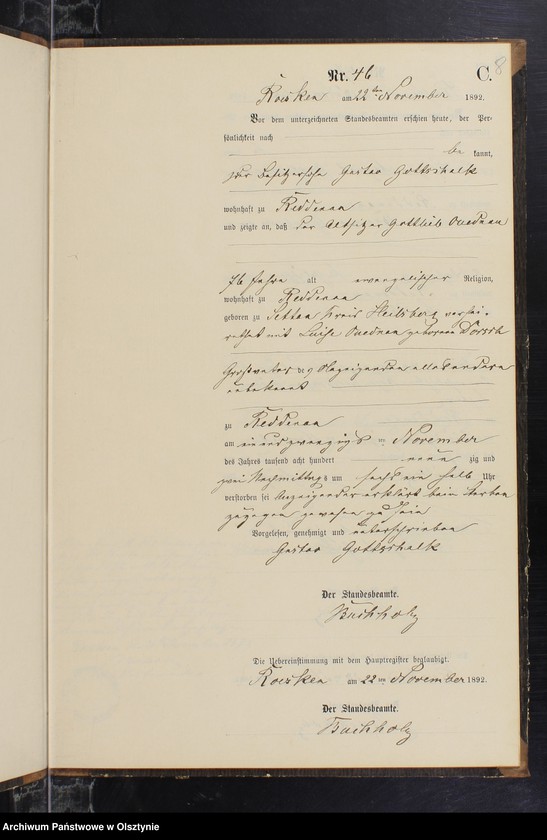 Nr. 46 C. 8
Roesken am 22ten November 1892.
Vor dem unterzeichneten Standesbeamten erschien heute, der Per-
sönlichkeit nach
be kannt,
der Besitzersohn Gustav Gottschalk
wohnhaft zu Reddenau
und zeigte an, daß der Altsitzer Gottlieb Quednau
76 Jahre alt evangelischer Religion,
wohnhaft zu Reddenau
geboren zu Settau Kreis Heilsberg verhei-
rathet mit Luise Quednau geborene
Großvater des Anzeigenden alles andere
unbekannt
zu Reddenau
am einundzwanzigst en November
des Jahres tausend acht hundert neun zig und
zwei Nachmittags um sechs ein halb Uhr
verstorben sei Anzeigender erklärt beim Sterben
zugegen gewesen zu sein
Vorgelesen, genehmigt und unterschrieben
Gustav Gottschalk
Der Standesbeamte.
Buchholz
Die Uebereinstimmung mit dem Hauptregister beglaubigt.
Roesken am 22ten November 1892.
Der Standesbeamte.
Buchholz
Archiwum Państwowe w Olsztynie